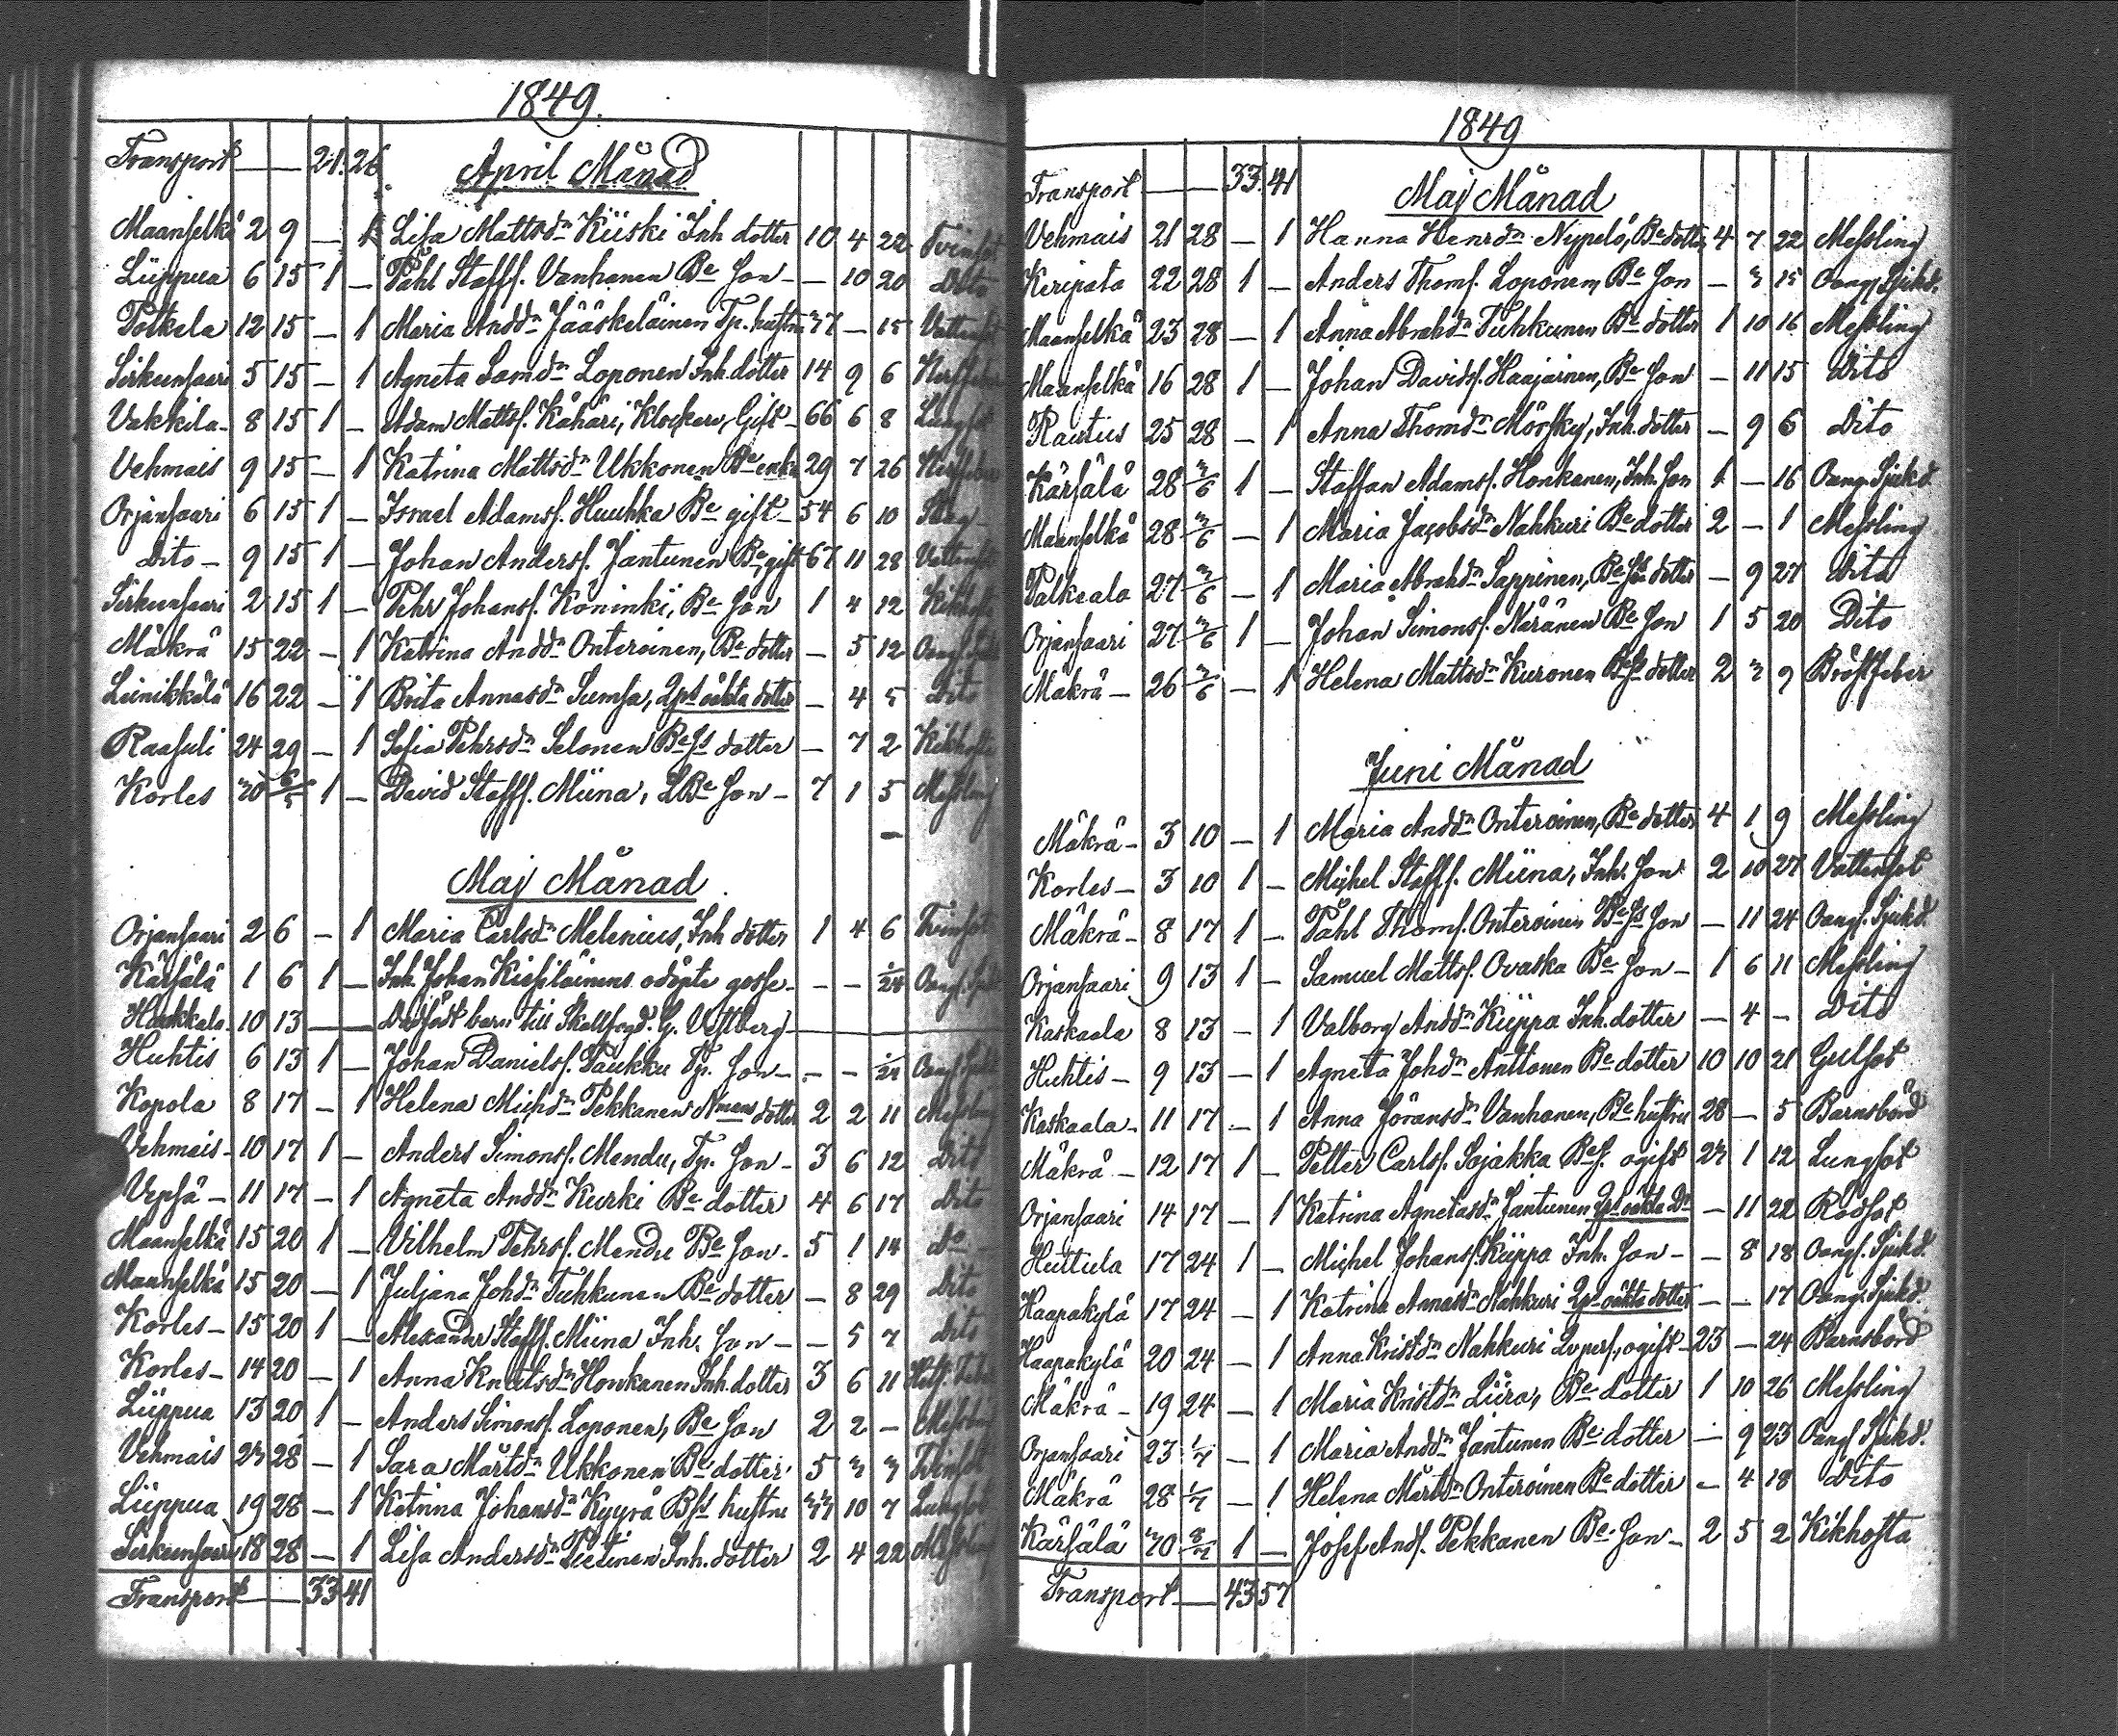 1849.
Transport — — 21. 26.
April Månad
Maanselkä 2 9 — 1 Lisa Mattsdr Kiiski Inh dotter 10 4 22 Tvinsot
Liippua 6 15 1 — Påhl Staffs. Vanhanen Be son — — 10 20 Dito
Potkela 12 15 — 1 Maria Andsdr Jääskeläinen Tp. hustru 37 — 15 Vattensot
Sirkeensaari 5 15 — 1 Agneta Samdr Loponen Inh. dotter 14 9 6
Vakkila — 8 15 1 — Adam Mattss. Kähäri, Klockare, Gift — 66 6 8 Lungsot
Vehmais 9 15 — 1 Katrina Mattsdr Ukkonen Be enka 29 7 26
Orjansaari 6 15 1 — Israel Adamss. Huuhka Be gift — 54 6 10
Dito — 9 15 1 — Johan Anderss. Jantunen Be, gift 67 11 28 Vattensot
Sirkeensaari 2 15 1 — Pehr Johanss. Köninki, Be son 1 4 12 Kikhosta
Mäkrä 15 22 — 1 Katrina Anddr Onteroinen, Be dotter — 5 12 Oang. Sjukd.
Leinikkälä 16 22 — 1 Brita Annasdr Sumsa, Qps oäkta dotter — 4 5 Dito
Raasuli 24 29 — 1 Sofia Pehrsdr Selonen Bess dotter — 7 2 Kikhosta
Korles 30 6/5 1 — David Staffs. Miina, LBe son — 7 1 5 Messling
Maj Månad.
Orjansaari 2 6 — 1 Maria Carlsdr Melenius, Inh dotter 1 4 6 Tvinsot
Kärsälä 1 6 1 — Inh. Johan Kiesiläinens odöpte gosse — — — 1/24 Oang. Sjukd.
Haukkala 10 13 — — Dödfödt barn till Skallfogd. G. Vestberg —
Huhtis 6 13 1 — Johan Danielss. Paukku Tp. son — — — 1/24 Oang. Sjukd.
Kopola 8 17 — 1 Helena Michdr Pekkanen Nmans dotter 2 2 11 Messling
Vehmais — 10 17 1 — Anders Simonss. Mendu, Tp. son — 3 6 12 Dito
Vepsä — 11 17 — 1 Agneta Anddr Kurki Be dotter 4 6 17 Dito
Maanselkä 15 20 1 — Vilhelm Pehrss. Mendu Be son — 5 1 14 Do
Maanselkä 15 20 — 1 Juljana Johdr Tuhkunen Be dotter — 8 29 Dito
Korles — 15 20 1 — Alexander Staffs. Miina Inh. son — — 5 7 Dito
Korles — 14 20 — 1 Anna Knutsdr Honkanen Inh. dotter 3 6 11
Liippua 13 20 1 — Anders Simonss. Loponen, Be son 2 2 — Messling
Vehmais 23 28 — 1 Sara Mårtsdr Ukkonen Be dotter 5 3 3 Tvinsot
Liippua 19 28 — 1 Katrina Johansdr Kyyrä Bss hustru 33 10 7 Lungsot
Sirkeensaari 18 28 — 1 Lisa Andersdr Pietinen Inh. dotter 2 4 22 Messling
Transport — — 33 41
1849
Transport — — 33. 41
Maj Månad
Vehmais 21 28 — 1 Hanna Henrdr Nypelö, Be dotter 4 7 22 Messling
Keripata 22 28 1 — Anders Thoms. Loponen, Be son — 3 15 Oang. Sjukd.
Maanselkä 23 28 — 1 Anna Abrahdr Tuhkunen Be dotter 1 10 16 Messling
Maanselkä 16 28 1 — Johan Davidss. Haajainen, Be son — 11 15 Dito
Rautus 25 28 — 1 Anna Thomdr Mörsky, Inh. dotter — 9 6 Dito
Kärsälä 28 3/6 1 — Staffan Adamss. Honkanen, Inh. son 1 — 16 Oang. Sjukd.
Maanselkä 28 3/6 — 1 Maria Jacobsdr Nahkuri Be dotter 2 — 1 Messling
Palkeala 27 3/6 — 1 Maria Abrahdr Sappinen, Be ss dotter — 9 27 Dito
Orjansaari 27 3/6 1 — Johan Simonss. Näränen Be son 1 5 20 Dito
Mäkrä — 26 3/6 — 1 Helena Mattsdr Kuronen Bess dotter 2 3 9 Bröstfeber
Juni Månad
Mäkrä — 3 10 — 1 Maria Anddr Onteroinen, Be dotter 4 1 9 Messling
Korles — 3 10 1 — Michel Staffs. Miina, Inh. son 2 10 27 Vattensot
Mäkrä — 8 17 1 — Påhl Thoms. Onteroinen Bess son — 11 24 Oang. Sjukd.
Orjansaari 9 13 1 — Samuel Mattss. Ovaska Be son — 1 6 11 Messling
Kaskaala 8 13 — 1 Valborg Anddr Kiippa Inh. dotter — 4 — Dito
Huhtis — 9 13 — 1 Agneta Johdr Anttonen Be dotter 10 10 21 Gulsot
Kaskaala — 11 17 — 1 Anna Göransdr Vanhanen, Be hustru 28 — 5 Barnsbörd
Mäkrä — 12 17 1 — Petter Carlss. Sojakka Bes. ogift 23 1 12 Lungsot
Orjansaari 14 17 — 1 Katrina Agnetasdr Jantunen Qps oäkta Dr — 11 22 Rödsot
Huttula 17 24 1 — Michel Johanss. Kiippa Inh. son — — 8 18 Oang. Sjukd.
Haapakylä 17 24 — 1 Katrina Annasdr Nahkuri Qps oäkta dotter — — 17 Oang. Sjukd.
Haapakylä 20 24 — 1 Anna Kristdr Nahkuri Qvpers, ogift — 23 — 24 Barnsbörd
Mäkrä — 19 24 — 1 Maria Kristdr Liira, Be dotter 1 10 26 Messling
Orjansaari 23 1/7 — 1 Maria Anddr Jantunen Be dotter — 9 23 Oang. Sjukd.
Mäkrä 28 1/7 — 1 Helena Mårtsdr Onteroinen Be dotter — 4 18 Dito
Kärsälä 30 8/7 1 — Josef Ands. Pekkanen Be son — 2 5 2 Kikhosta
Transport — — 43 57